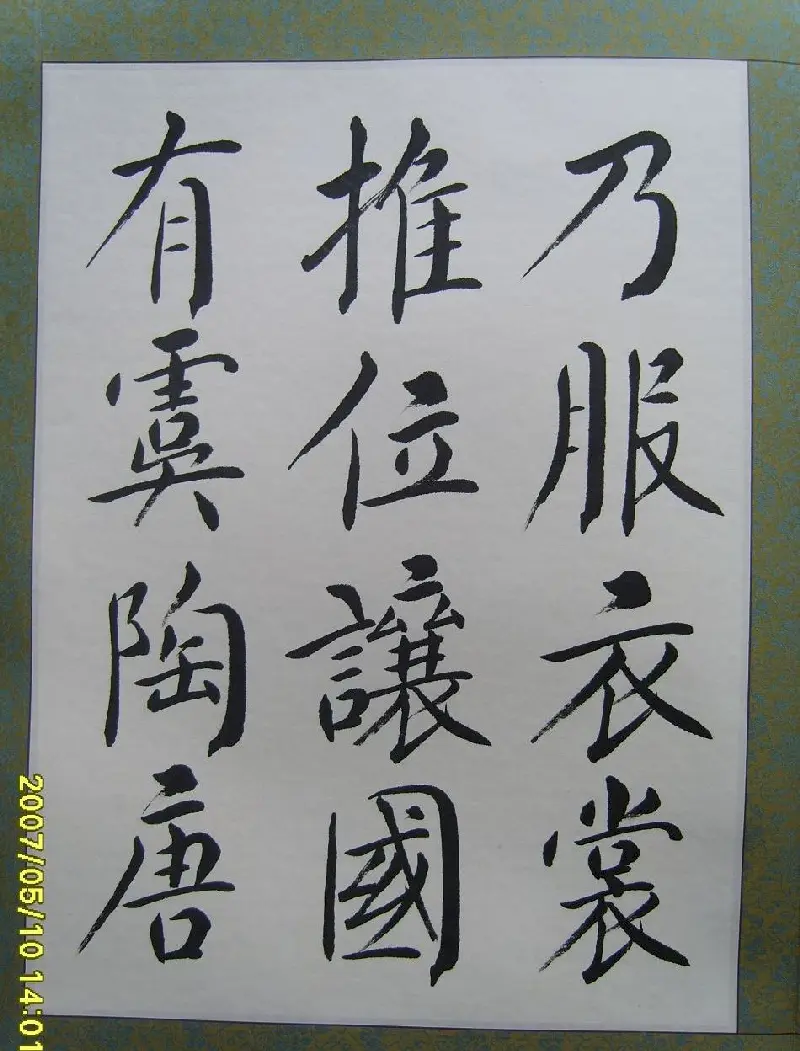 乃服衣裳
推位讓國
有虞陶唐
2007/05/10 14:01